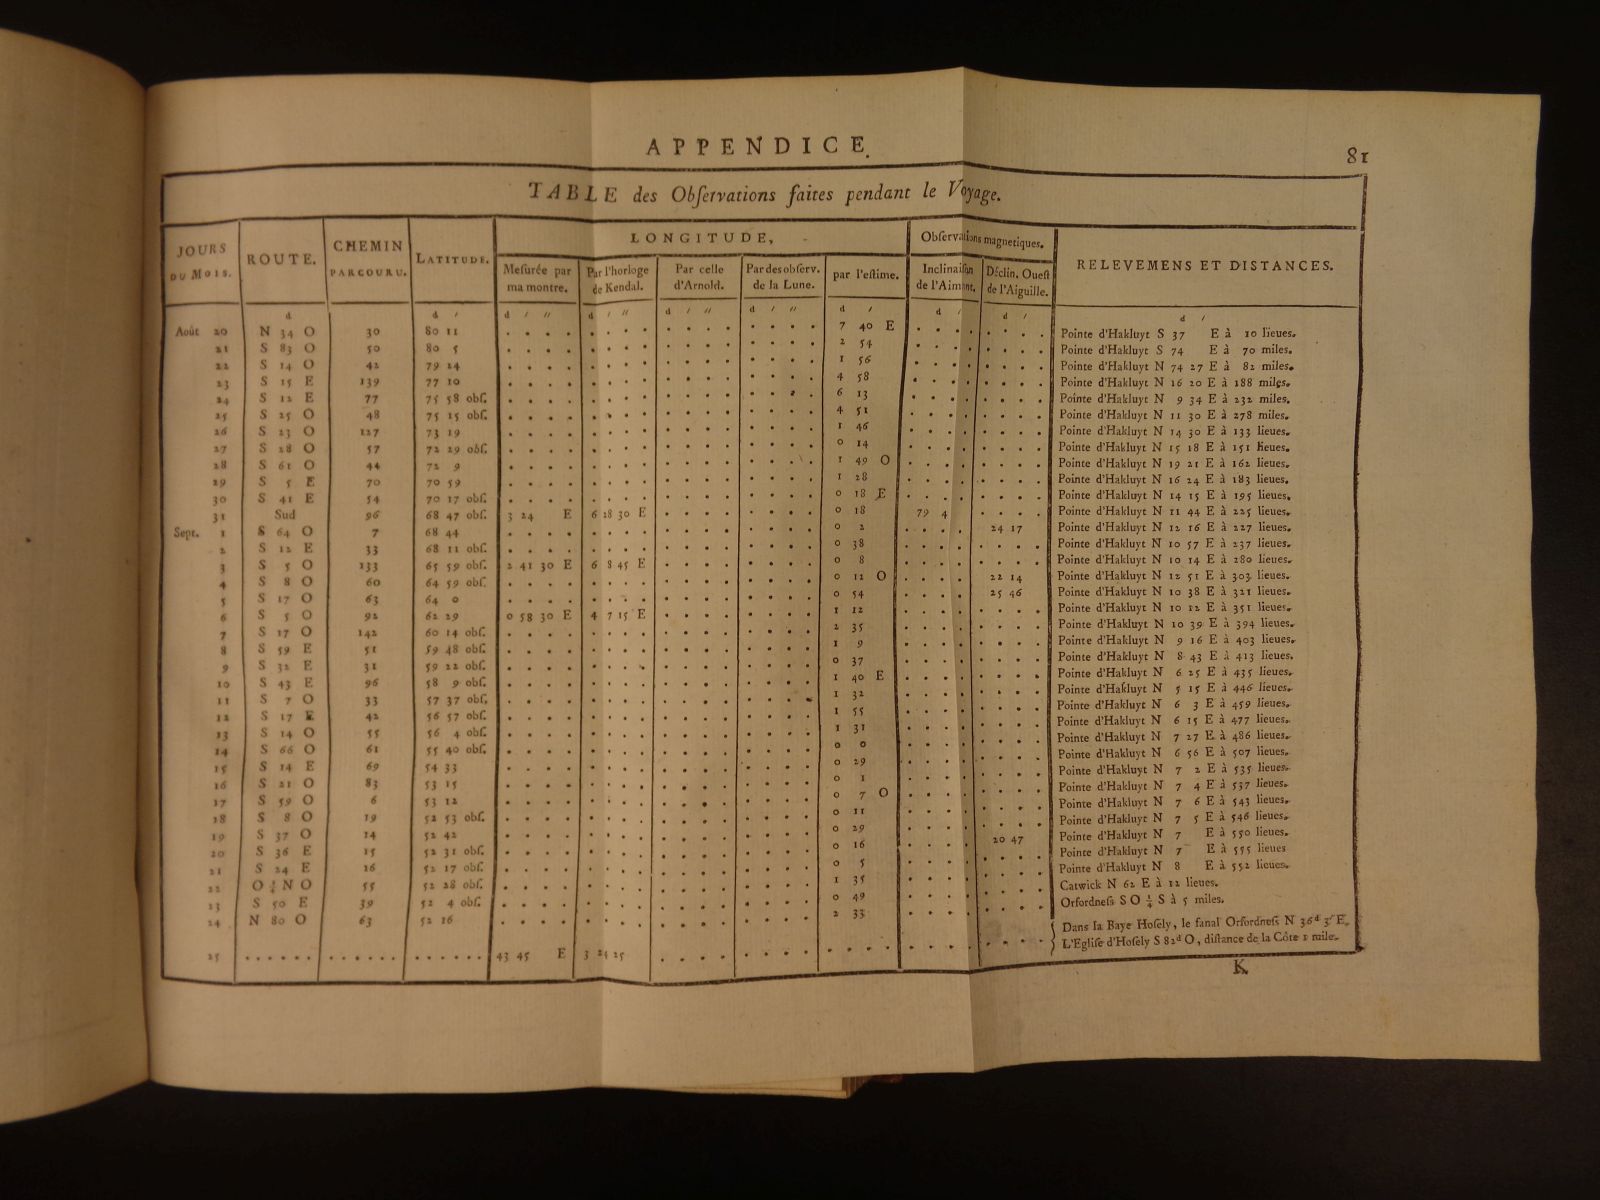 APPENDICE.
81
TABLE des Obſervations faites pendant le Voyage.
JOURS DU MOIS. ROUTE. CHEMIN PARCOURU. LATITUDE. LONGITUDE, Obſervations magnetiques. RELEVEMENS ET DISTANCES.
Meſurée par ma montre. Par l'horloge de Kendal. Par celle d'Arnold. Par des obſerv. de la Lune. par l'eſtime. Inclinaiſon de l'Aimant. Déclin. Oueſt de l'Aiguille.
d d ′ d ′ ″ d ′ ″ d ′ ″ d ′ ″ d ′ d ′ d ′ d ′
Août 20 N 34 O 30 80 11 7 40 E Pointe d'Hakluyt S 37 E à 10 lieues.
21 S 83 O 50 80 5 2 54 Pointe d'Hakluyt S 74 E à 70 miles.
22 S 14 O 42 79 24 1 56 Pointe d'Hakluyt N 74 27 E à 82 miles.
23 S 15 E 139 77 10 4 58 Pointe d'Hakluyt N 16 20 E à 188 miles.
24 S 12 E 77 75 58 obſ. 6 13 Pointe d'Hakluyt N 9 34 E à 232 miles.
25 S 25 O 48 75 15 obſ. 4 51 Pointe d'Hakluyt N 11 30 E à 278 miles.
26 S 23 O 127 73 19 1 46 Pointe d'Hakluyt N 14 30 E à 133 lieues.
27 S 28 O 57 72 29 obſ. 0 14 Pointe d'Hakluyt N 15 18 E à 151 lieues.
28 S 61 O 44 72 9 1 49 O Pointe d'Hakluyt N 19 21 E à 162 lieues.
29 S 5 E 70 70 59 1 28 Pointe d'Hakluyt N 16 24 E à 183 lieues.
30 S 41 E 54 70 17 obſ. 0 18 E Pointe d'Hakluyt N 14 15 E à 195 lieues.
31 Sud 96 68 47 obſ. 3 24 E 6 28 30 E 0 18 79 4 Pointe d'Hakluyt N 11 44 E à 225 lieues.
Sept. 1 S 64 O 7 68 44 0 2 24 17 Pointe d'Hakluyt N 12 16 E à 227 lieues.
2 S 12 E 33 68 11 obſ. 0 38 Pointe d'Hakluyt N 10 57 E à 237 lieues.
3 S 5 O 133 65 59 obſ. 2 41 30 E 6 8 45 E 0 8 Pointe d'Hakluyt N 10 14 E à 280 lieues.
4 S 8 O 60 64 59 obſ. 0 12 O 22 14 Pointe d'Hakluyt N 12 51 E à 303 lieues.
5 S 17 O 63 64 0 0 54 25 46 Pointe d'Hakluyt N 10 38 E à 321 lieues.
6 S 5 O 92 62 29 0 58 30 E 4 7 15 E 1 12 Pointe d'Hakluyt N 10 12 E à 351 lieues.
7 S 17 O 142 60 14 obſ. 2 35 Pointe d'Hakluyt N 10 39 E à 394 lieues.
8 S 59 E 51 59 48 obſ. 1 9 Pointe d'Hakluyt N 9 16 E à 403 lieues.
9 S 32 E 31 59 22 obſ. 0 37 Pointe d'Hakluyt N 8 43 E à 413 lieues.
10 S 43 E 96 58 9 obſ. 1 40 E Pointe d'Hakluyt N 6 25 E à 435 lieues.
11 S 7 O 33 57 37 obſ. 1 32 Pointe d'Hakluyt N 5 15 E à 446 lieues.
12 S 17 E 42 56 57 obſ. 1 55 Pointe d'Hakluyt N 6 3 E à 459 lieues.
13 S 14 O 55 56 4 obſ. 1 31 Pointe d'Hakluyt N 6 15 E à 477 lieues.
14 S 66 O 61 55 40 obſ. 0 0 Pointe d'Hakluyt N 7 27 E à 486 lieues.
15 S 14 E 69 54 33 0 29 Pointe d'Hakluyt N 6 56 E à 507 lieues.
16 S 21 O 83 53 15 0 1 Pointe d'Hakluyt N 7 2 E à 535 lieues.
17 S 59 O 6 53 12 0 7 O Pointe d'Hakluyt N 7 4 E à 537 lieues.
18 S 8 O 19 52 53 obſ. 0 11 Pointe d'Hakluyt N 7 6 E à 543 lieues.
19 S 37 O 14 52 42 0 29 Pointe d'Hakluyt N 7 5 E à 546 lieues.
20 S 36 E 15 52 31 obſ. 0 16 20 47 Pointe d'Hakluyt N 7 E à 550 lieues.
21 S 24 E 16 52 17 obſ. 0 5 Pointe d'Hakluyt N 7 E à 555 lieues
22 O ¼ N O 55 52 28 obſ. 1 35 Pointe d'Hakluyt N 8 E à 552 lieues.
23 S 50 E 39 52 4 obſ. 0 49 Catwick N 62 E à 12 lieues.
24 N 80 O 63 52 16 2 33 Orfordneſs S O ¼ S à 5 miles.
25 43 45 E 3 24 25 Dans la Baye Hoſely, le fanal Orfordneſs N 36d 3′ E.
L'Egliſe d'Hoſely S 82d O, diſtance de la Côte 1 mile.
K